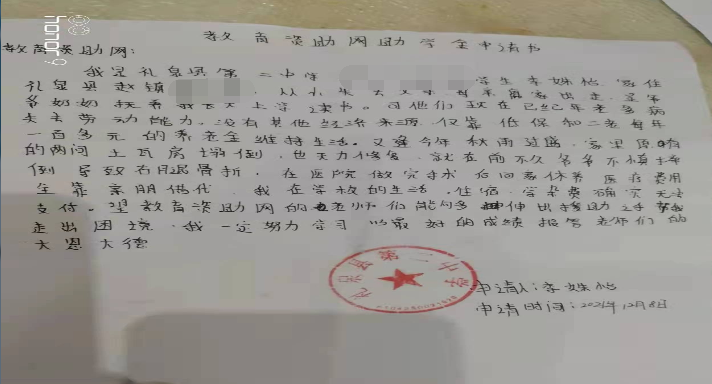 honor
教育资助网助学金申请书
教育资助网:
我是礼泉县第二中学 学生李姝怡,家住
礼泉县赵镇 ,从小失去父亲,母亲离家出走,是爷
爷奶奶抚养我长大上学读书。可他们现在已经年老多病
失去劳动能力,没有其他经济来源,仅靠低保和二老每年
一百多元的养老金维持生活。又逢今年秋雨过盛,家里原有
的两间土瓦房墙倒,也无力修复,就在前不久爷爷不慎摔
倒导致右腿骨折,在医院做完手术后回家休养医疗费用
全靠亲朋借代,我在学校的生活,住宿,学杂费确实无法
支付。望教育资助网的老师们能够伸出援助之手帮我
走出困境,我一定努力学习以最好的成绩报答老师们的
大恩大德
礼泉县第二中学
申请人:李姝怡
申请时间:2021年12月8日